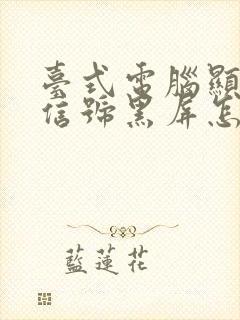 臺式電腦顯
信號黑屏怎
藍蓮花